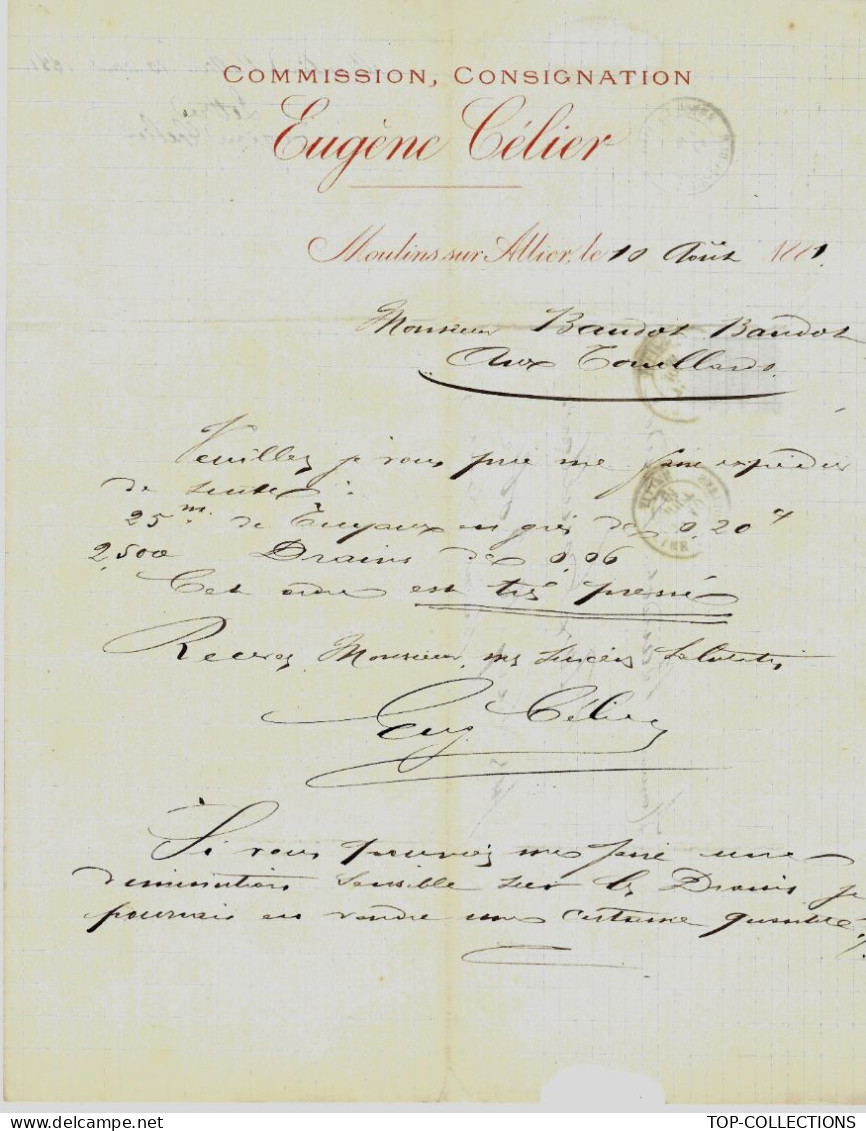 COMMISSION, CONSIGNATION
Eugène Célier
Moulins sur Allier, le 10 Août 1881.
Monsieur Baudot Baudot
Aux Touillards
Veuillez je vous prie me faire expédier
de suite :
25 m. de Tuyaux en grès de 0,20
2,500 Drains de 0,06
Cet ordre est très pressé
Recevez, Monsieur, mes sincères Salutations
Eug Célier
Si vous pouviez me faire une
diminution sensible sur les Drains je
pourrais en vendre une certaine quantité
TOP-COLLECTIONS